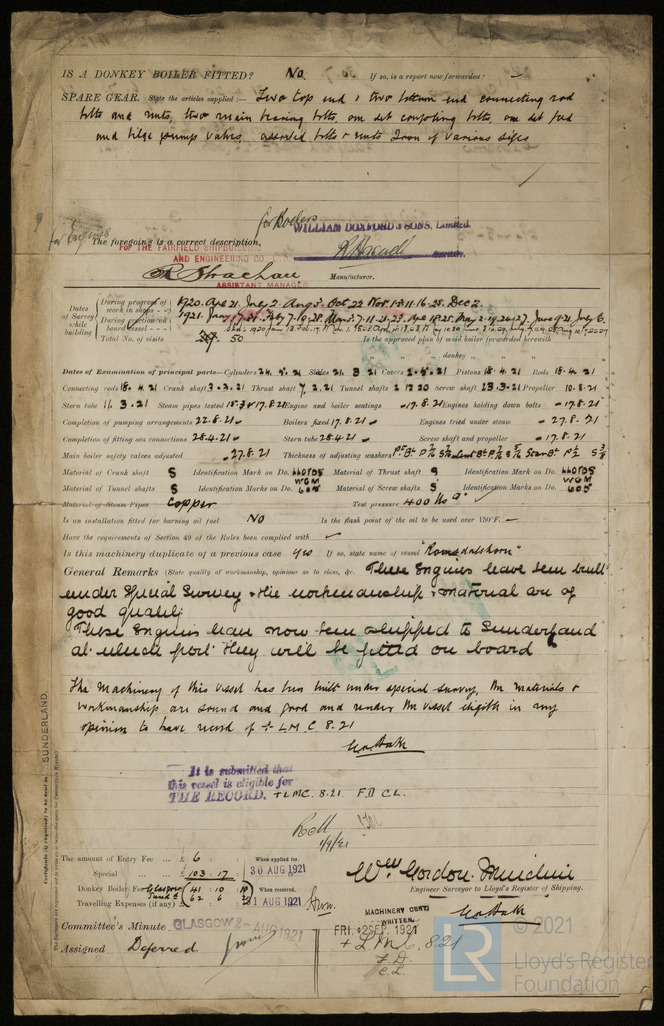 IS A DONKEY BOILER FITTED? No. If so, is a report now forwarded?
SPARE GEAR. State the articles supplied:— Two top end & two bottom end connecting rod
bolts and nuts, two main bearing bolts, one set coupling bolts, one set feed
and bilge pump valves, assorted bolts & nuts Iron of various sizes
for Boilers
WILLIAM DOXFORD & SONS, Limited.
for Engines
The foregoing is a correct description,
FOR THE FAIRFIELD SHIPBUILDING
AND ENGINEERING CO. LTD.
R Strachan
Manufacturer.
ASSISTANT MANAGER
Dates of Survey while building
During progress of work in shops - - 1920. Apr 21. July 2. Aug 3. Oct 22 Nov. 1.8.11.16.25. Dec 2.
During erection on board vessel - - -
Total No. of visits 50 Is the approved plan of main boiler forwarded herewith
" " " donkey " " "
Dates of Examination of principal parts—Cylinders 24.5.21 Slides 21.3.21 Covers 2.5.21 Pistons 18.4.21 Rods 18.4.21
Connecting rods 18.4.21 Crank shaft 3.3.21 Thrust shaft 7.2.21 Tunnel shafts 2 12 20 Screw shaft 23.3.21 Propeller 10.8.21
Stern tube 11.3.21 Steam pipes tested 18.3 & 17.8.21 Engine and boiler seatings -17.8.21 Engines holding down bolts -17.8.21
Completion of pumping arrangements 22.8.21 Boilers fixed 17.8.21 Engines tried under steam -27.8.21
Completion of fitting sea connections 28.4.21 Stern tube 28.4.21 Screw shaft and propeller -17.8.21
Main boiler safety valves adjusted -27.8.21 Thickness of adjusting washers
Material of Crank shaft S Identification Mark on Do. Material of Thrust shaft S Identification Mark on Do.
Material of Tunnel shafts S Identification Marks on Do. WGM 605 Material of Screw shafts S Identification Marks on Do. WGM 605
Material of Steam Pipes Copper Test pressure 400 lbs □"
Is an installation fitted for burning oil fuel NO Is the flash point of the oil to be used over 150°F. —
Have the requirements of Section 49 of the Rules been complied with
Is this machinery duplicate of a previous case yes If so, state name of vessel "Romsdalshorn"
General Remarks (State quality of workmanship, opinions as to class, &c. These Engines have been built
under Special Survey & the workmanship & material are of
good quality.
These Engines have now been shipped to Sunderland
at which port they will be fitted on board
The Machinery of this vessel has been built under special survey, the materials &
workmanship are sound and good and render the vessel eligible in my
opinion to have record of + L M C 8.21
It is submitted that
this vessel is eligible for
THE RECORD. + LMC. 8.21. F.D. C.L.
1/9/21
Certificate (if required) to be sent to SUNDERLAND.
The amount of Entry Fee ... £ 6
Special ... £ 103 : 17
When applied for, 30 AUG 1921
Donkey Boiler Fee Glasgow 41 : 10 : 10
Sund 62 : 6
Travelling Expenses (if any) £
When received, 31 AUG 1921
Wm Gordon Murchie
Engineer Surveyor to Lloyd's Register of Shipping.
Committee's Minute GLASGOW 2- AUG 1921
MACHINERY CERT.
WRITTEN.
FRI. 2 SEP. 1921
Assigned Deferred
+ L M C 8.21
F.D.
C.L.
© 2021
LR
Lloyd's Register
Foundation